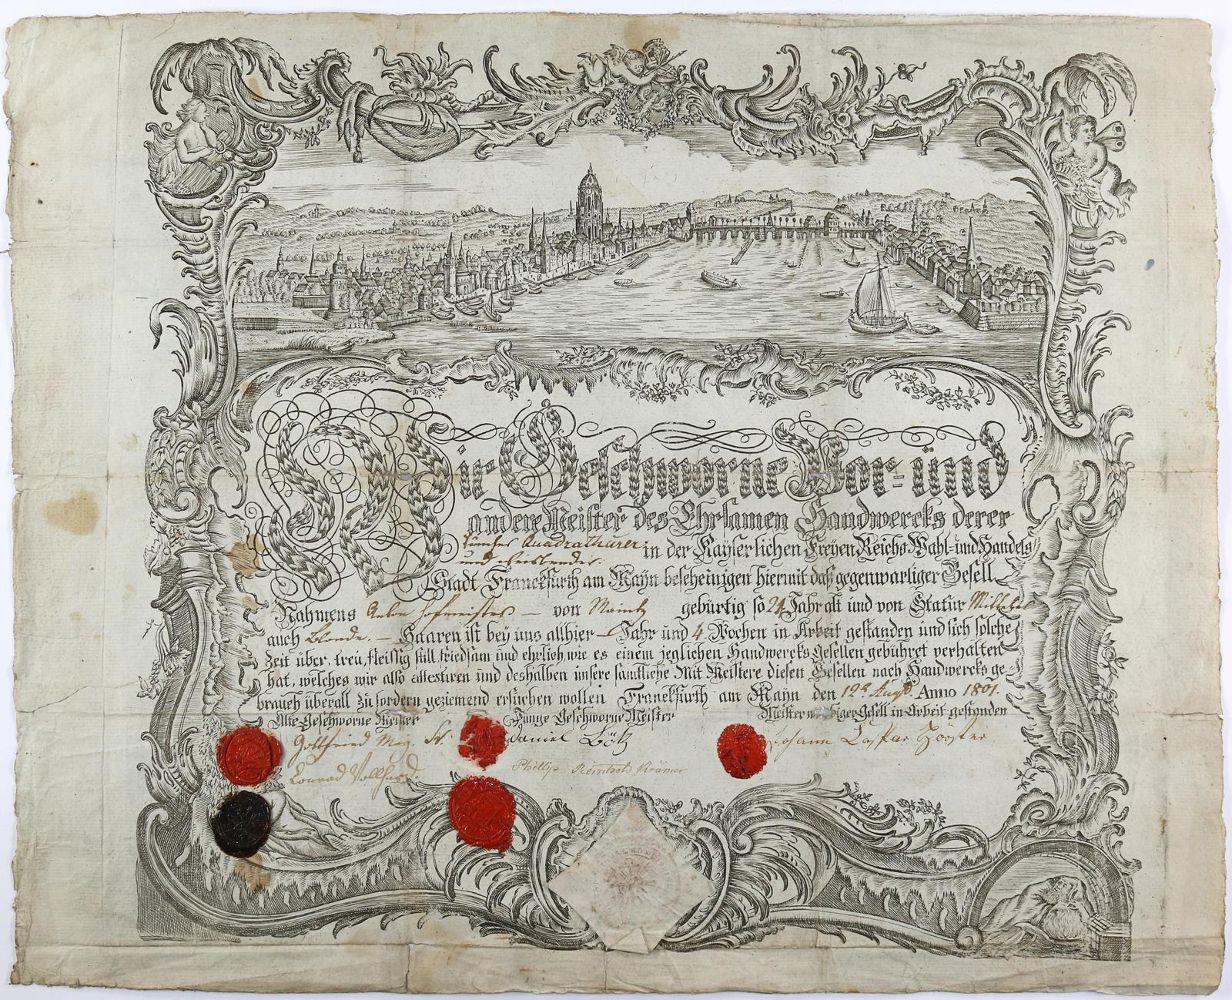 Wir Geschworne Vor- und
andere Meister des Ehrsamen Handwercks derer
Quadrathurer
in der Kayserlichen Freyen Reichs Wahl- und Handels
und
Stadt Franckfurth am Mayn bescheinigen hiermit daß gegenwärtiger Gesell
Nahmens Hofmeister von Maintz gebürtig so 24 Jahr alt und von Statur Mittel
auch blonde Haaren ist bey uns allhier Jahr und 4 Wochen in Arbeit gestanden und sich solche
Zeit über treu, fleissig still friedsam und ehrlich wie es einem jeglichen Handwercks Gesellen gebühret verhalten
hat, welches wir also attestiren und deshalben unsere samtliche Mit Meistere diesen Gesellen nach Handwercks ge
brauch überall zu fordern geziemend ersuchen wollen Franckfurth am Mayn den 19ten Augst Anno 1801.
Alte Geschworne Meister Junge Geschworne Meister Meister wo obiger Gesell in Arbeit gestanden
Gottfried Daniel Götz Johann
Conrad Phillip Krämer